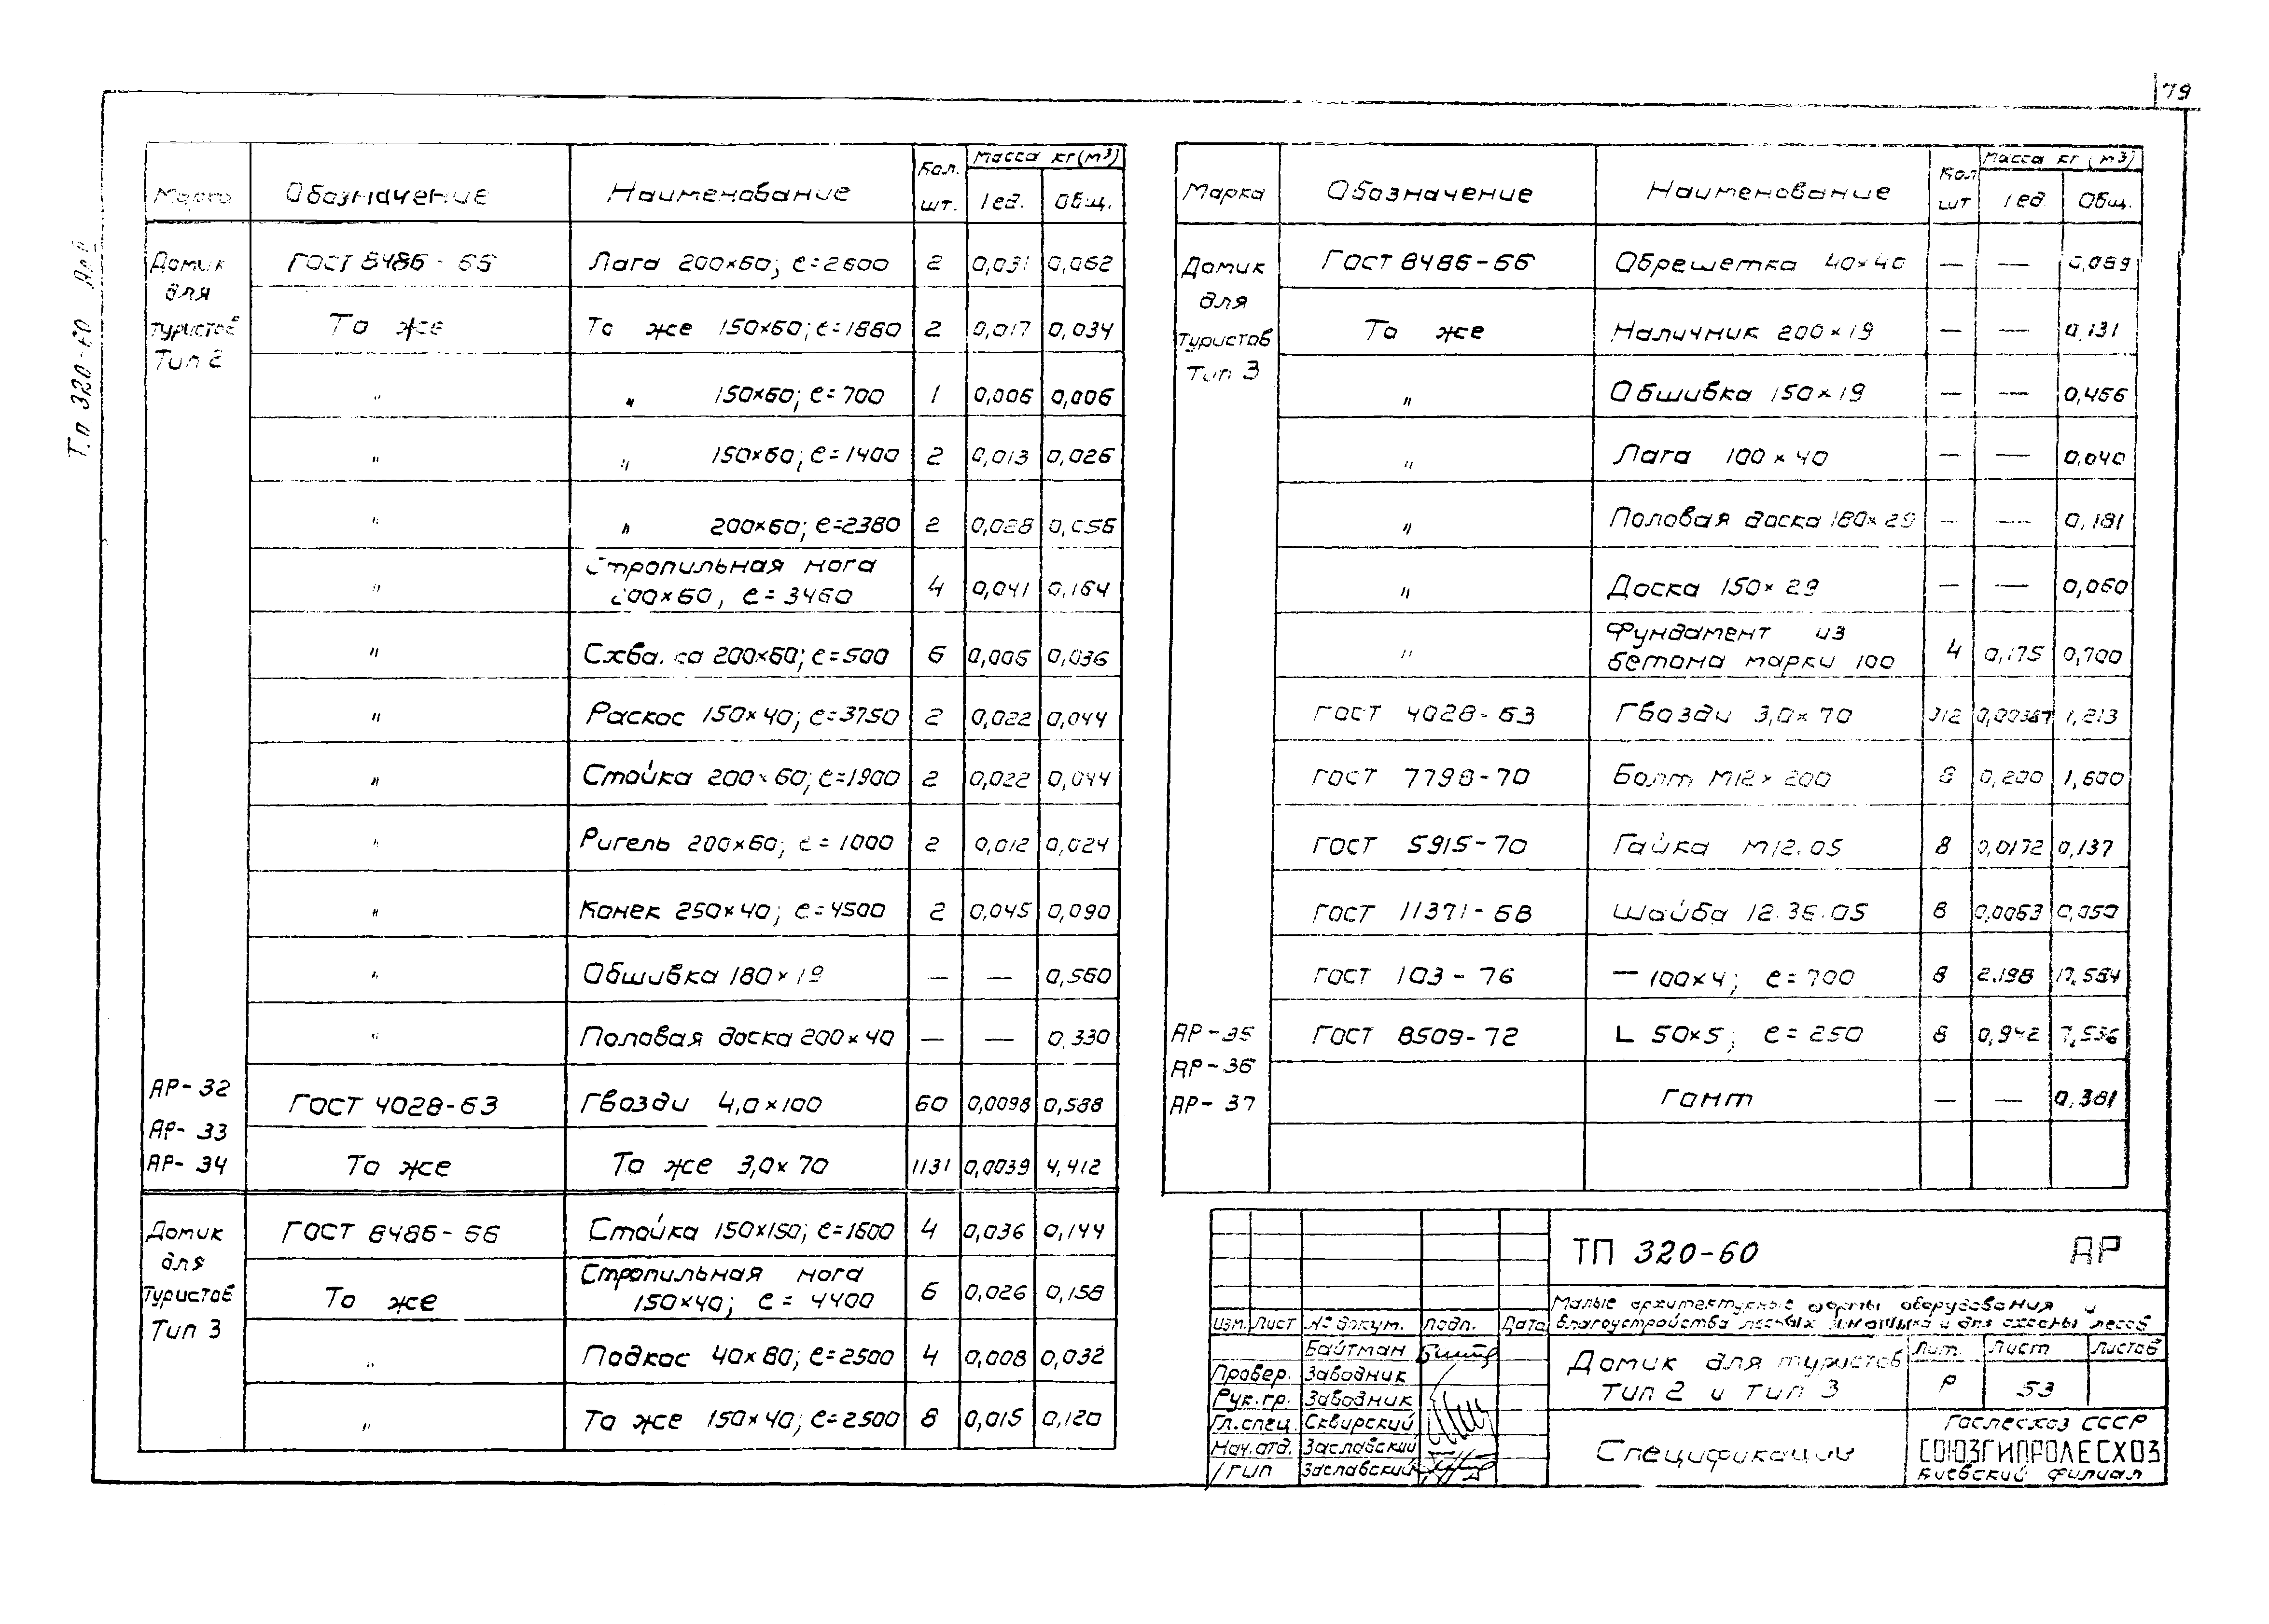 79
Т.п. 320-60
Марка Обозначение Наименование Кол. шт. Масса кг (м³) 1 ед. Общ.
Домик для туристов Тип 2
ГОСТ 8486-66 Лага 200×60; ℓ=2600 2 0,031 0,062
То же То же 150×60; ℓ=1880 2 0,017 0,034
" " 150×60; ℓ=700 1 0,006 0,006
" " 150×60; ℓ=1400 2 0,013 0,026
" " 200×60; ℓ=2380 2 0,028 0,056
" Стропильная нога
200×60, ℓ=3460 4 0,041 0,164
" 200×60; ℓ=500 6 0,006 0,036
" Раскос 150×40; ℓ=3750 2 0,022 0,044
" Стойка 200×60; ℓ=1900 2 0,022 0,044
" Ригель 200×60; ℓ=1000 2 0,012 0,024
" Конек 250×40; ℓ=4500 2 0,045 0,090
" Обшивка 180×19 — — 0,560
" Половая доска 200×40 — — 0,330
АР-32
АР-33
АР-34
ГОСТ 4028-63 Гвозди 4,0×100 60 0,0098 0,588
То же То же 3,0×70 1131 0,0039 4,412
Домик для туристов Тип 3
ГОСТ 8486-66 Стойка 150×150; ℓ=1600 4 0,036 0,144
То же Стропильная нога
150×40; ℓ=4400 6 0,026 0,158
" Подкос 40×80; ℓ=2500 4 0,008 0,032
" То же 150×40; ℓ=2500 8 0,015 0,120
Марка Обозначение Наименование Кол шт Масса кг (м³) 1 ед. Общ.
Домик для туристов Тип 3
ГОСТ 8486-66 Обрешетка 40×40 — — 0,069
То же Наличник 200×19 — — 0,131
" Обшивка 150×19 — — 0,466
" Лага 100×40 — — 0,040
" Половая доска 180×29 — — 0,181
" Доска 150×29 — — 0,060
" Фундамент из
бетона марки 100 4 0,175 0,700
ГОСТ 4028-63 Гвозди 3,0×70 312 0,00387 1,213
ГОСТ 7798-70 Болт М12×200 8 0,200 1,600
ГОСТ 5915-70 Гайка М12.05 8 0,0172 0,137
ГОСТ 11371-68 Шайба 12.36.05 8 0,0063 0,050
ГОСТ 103-76 — 100×4; ℓ=700 8 2.198 17,584
АР-35
АР-36
АР-37
ГОСТ 8509-72 L 50×5; ℓ=250 8 0,942 7,536
Гонт — — 0,381
ТП 320-60 АР
Малые архитектурные формы оборудования и
благоустройства лесных и для охраны лесов
Изм. Лист № докум. Подп. Дата
Байтман
Провер. Заводник
Рук.гр. Заводник
Гл.спец. Сквирский
Нач.отд. Заславский
ГИП Заславский
Домик для туристов
Тип 2 и Тип 3
Лит. Лист Листов
Р 53
Спецификации
Гослесхоз СССР
СОЮЗГИПРОЛЕСХОЗ
Киевский филиал